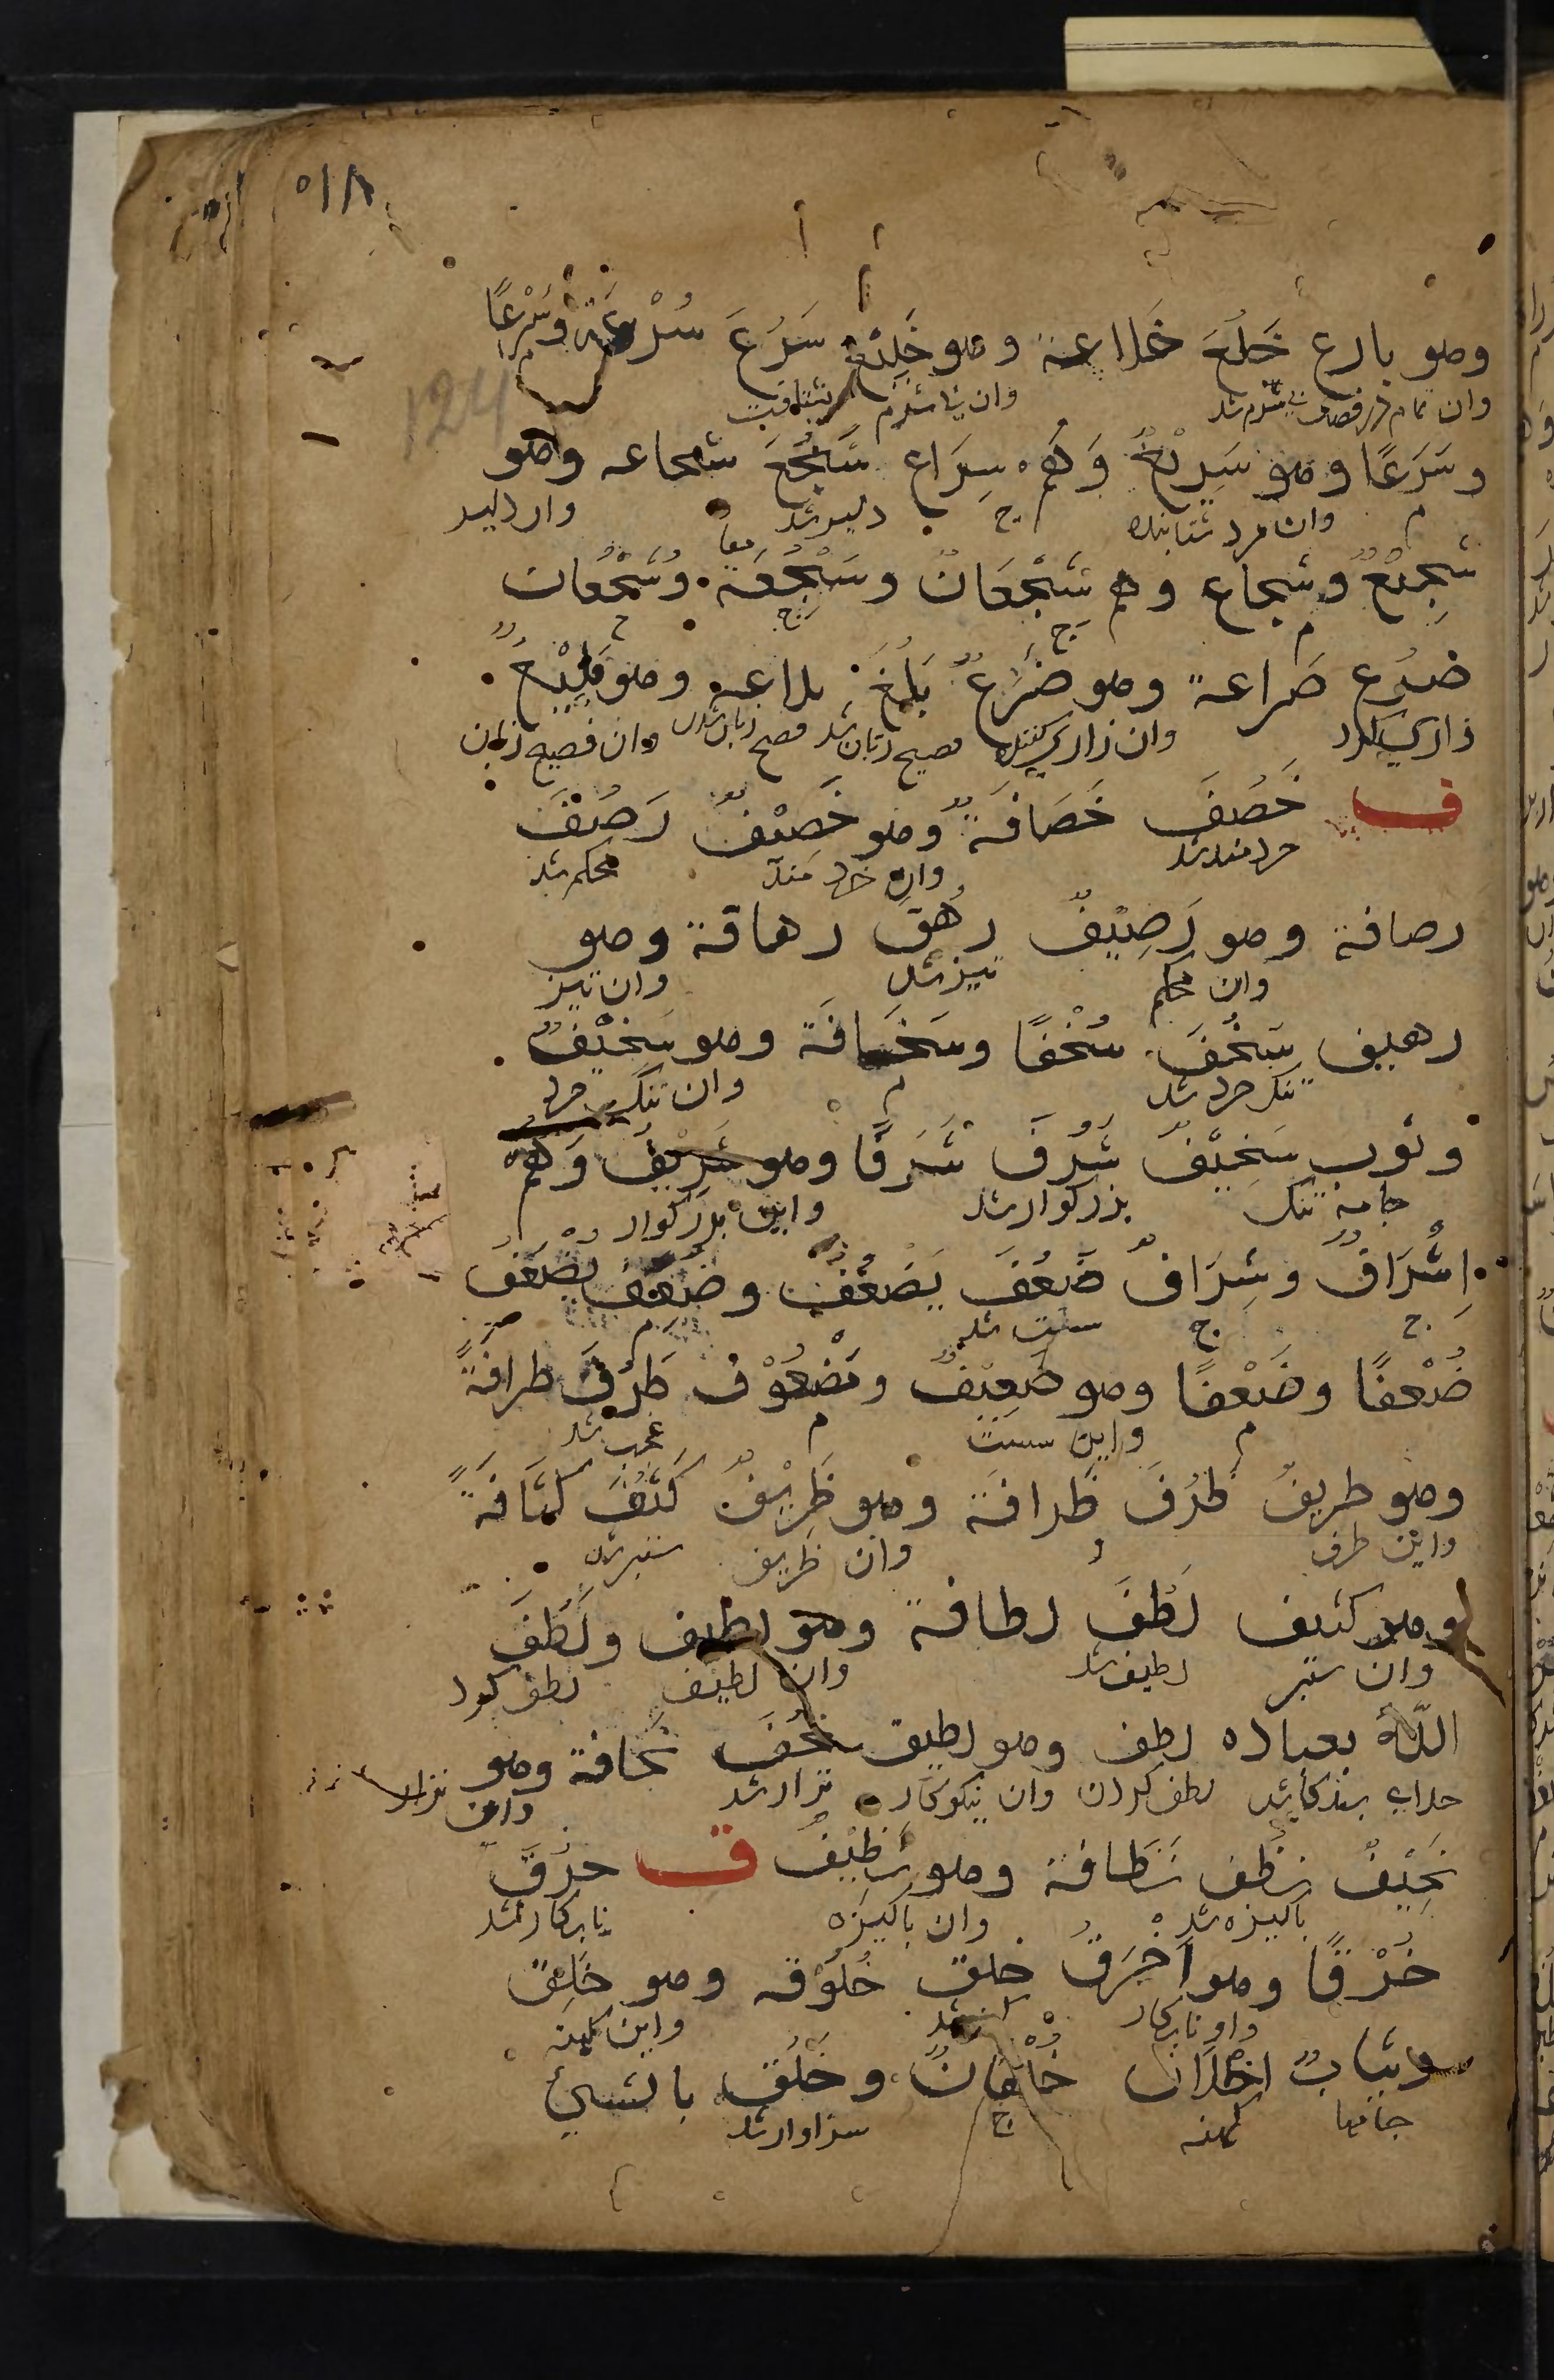 ۵۱۸
124
وهو بارع خَلُعَ خلاعة وهو خَلِيْعٌ سَرُعَ سُرْعَة وسَرْعًا
وان تمام در فضل بی شرم شد وان بی شرم بشتافت
وسَرَعًا وهو سَرِيْعٌ وَهُم سِرَاع شَجُعَ شجاعه وهو
م وان مرد شتابنده ج دلیر شد وان دلیر
شَجِيْعٌ وشجاع وهم شَجْعَانٌ وشَجْعَة وشُجْعَان
ج ج
ضرُع ضراعة وهو ضَرَعٌ بَلُغَ بلاغه وهو بَلِيْغٌ
زاری کرد وان زاری کننده فصیح زبان شد فصیح زبان شدن وان فصیح زبان
ف حَصُفَ حَصَافَةً وهو حَصِيْفٌ رَصُفَ
خردمند شد وان خردمند محکم شد
رصافة وهو رَصِيْفٌ رهُف رهافة وهو
وان محکم تیز شد وان تیز
رهيف سَخُفَ سُخْفًا وسَخَافَة وهو سَخِيْفٌ
تنک خرد شد م وان تنک خرد
وثوب سَخِيْفٌ شَرُفَ شَرَفًا وهو شَرِيْفٌ وَهُم
جامه تنک بزرکوار شد واین بزرکوار
اشْرَافٌ وشِرَافٌ ضَعُفَ يَضْعُفُ وضعَف يضعَفُ
ج ج سست شد م
ضُعْفًا وضَعْفًا وهو ضَعِيْفٌ ومَضْعُوْف طَرُفَ طرافَةً
م واین سست م عجب شد
وهو طريفٌ ظَرُفَ ظَرافَة وهو ظَرِيْفٌ كَثُفَ كثَافَةً
واین طرف وان ظریف ستبر شد
وهو كثيف لَطُفَ لطافة وهو لطيف ولَطَفَ
وان ستبر لطیف شد وان لطیف لطف کرد
اللّهُ بعباده لطف وهو لطيف نحُفَ نَحافة وهو
خدای ببندکانش لطف کردن وان نیکوکار نزار شد واین نزار
نَحِيْفٌ نظُف نَظافة وهو نَظِيْفٌ ق خرُقَ
باکیزه شد وان باکیزه نابرکار شد
خُرْقًا وهو اَخْرَقُ خلق خُلُوْقه وهو خَلِقٌ
واو نابرکار کهنه شد واین کهنه
وثيابٌ اخلاق خُلْقَانٌ وخلُق بالشيئ
جامها کهنه ج سزاوار شد